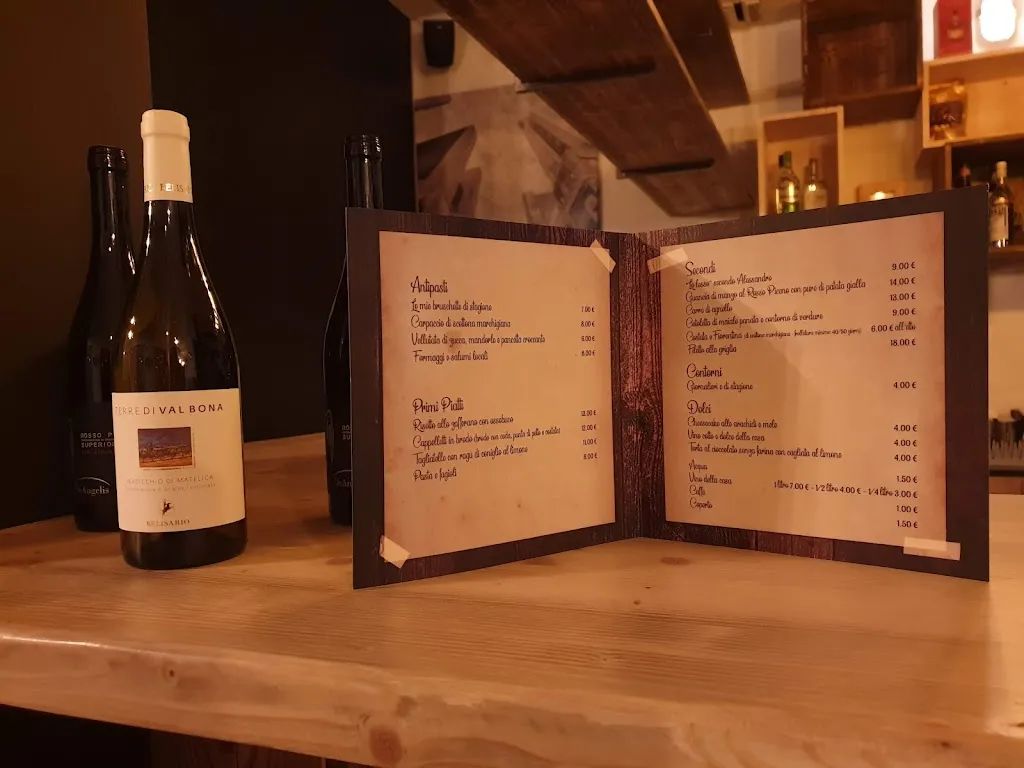 TERRE DI VAL BONA
VERDICCHIO DI MATELICA
BELISARIO
ROSSO P
SUPERIO
Angelis
Antipasti
Le mie bruschette di stagione 7.00 €
Carpaccio di scottona marchigiana 8.00 €
Vellutata di zucca, mandorle e pancetta croccante 6.00 €
Formaggi e salumi locali 8.00 €
Primi Piatti
Risotto allo zafferano con ossobuco 12.00 €
Cappelletti in brodo (brodo con coda, punta di petto e costate) 12.00 €
Tagliatelle con ragù di coniglio al limone 11.00 €
Pasta e fagioli 8.00 €
Secondi 9.00 €
"La fossa" secondo Alessandro 14.00 €
Guancia di manzo al Rosso Piceno con purè di patata gialla 13.00 €
Carrè di agnello 9.00 €
Cotoletta di maiale panata e contorno di verdure
Costata e Fiorentina di scottona marchigiana - frollatura minimo 40/50 giorni 6.00 € all'etto
Filetto alla griglia 18.00 €
Contorni
Giornalieri e di stagione 4.00 €
Dolci
Cheesecake alle arachidi e mele 4.00 €
Vino cotto e dolce della casa 4.00 €
Torta al cioccolato senza farina con cagliata al limone 4.00 €
Acqua 1.50 €
Vino della casa 1 litro 7.00 € - 1/2 litro 4.00 € - 1/4 litro 3.00 €
Caffè 1.00 €
Coperto 1.50 €